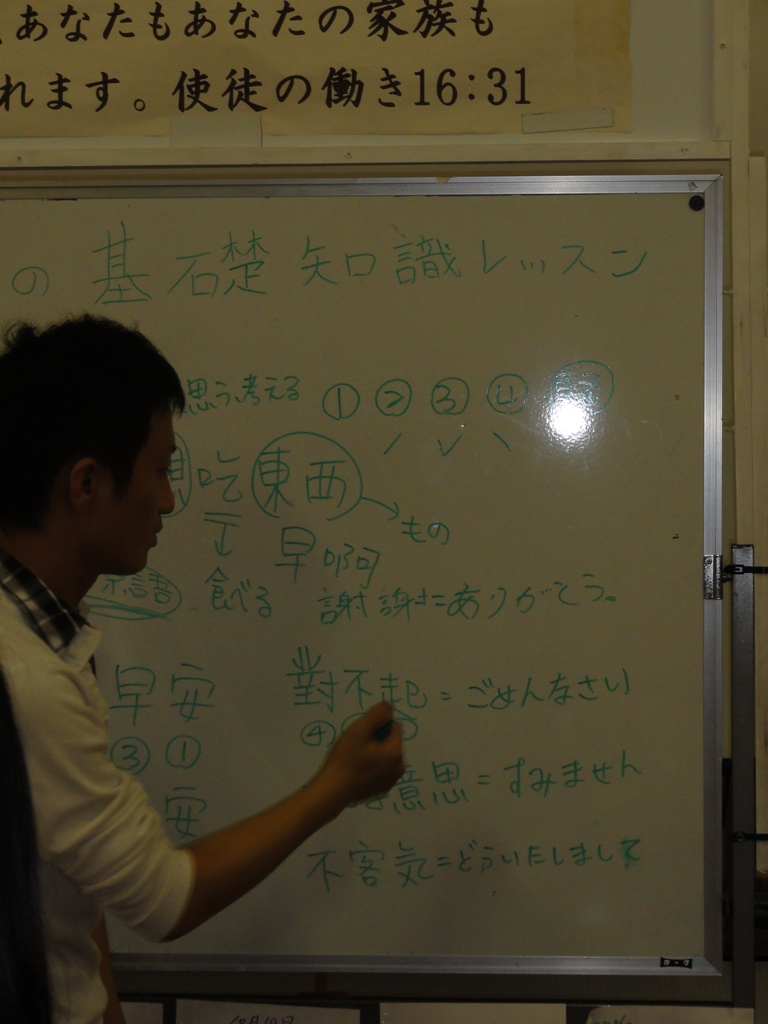 あなたもあなたの家族も
れます。使徒の働き16:31
の基礎知識レッスン
思う、考える ① ② ③ ④
ˊ ˇ ˋ
吃 東西 → もの
早啊
食べる 謝謝=ありがとう。
早安 對不起=ごめんなさい
③ ① ④
意思=すみません
安
不客気=どういたしまして